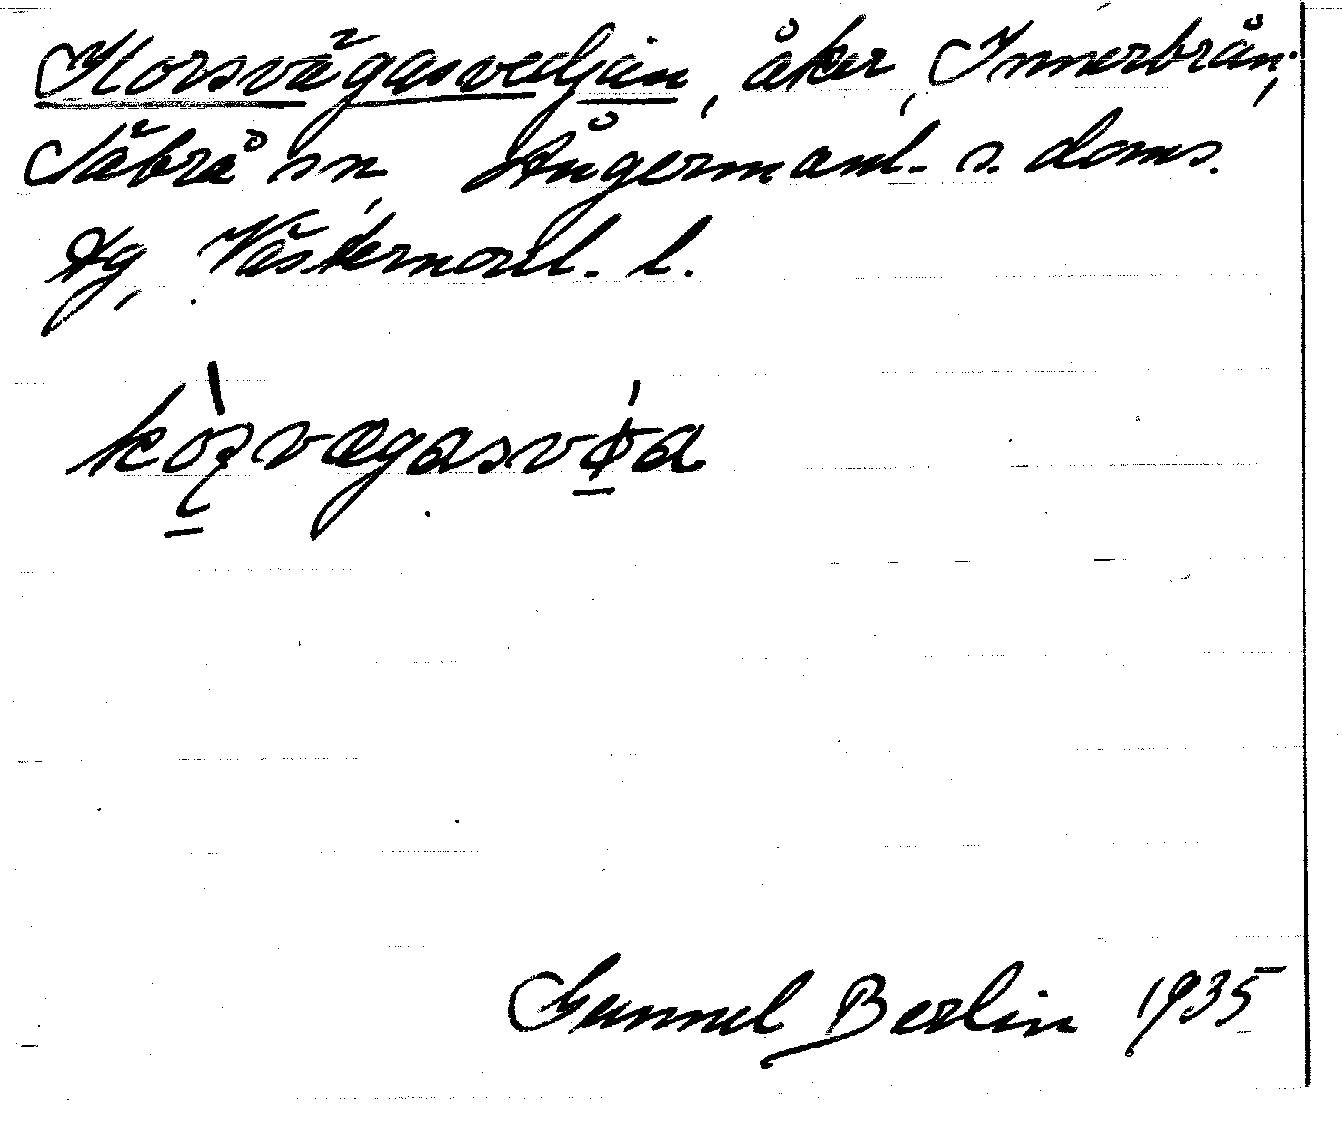 Korsvägasvedjan, åker, Innerbrån,
Säbrå sn Ångermanl. s. doms.
dg, Västernorrl. l.
Gunnel Berlin 1935